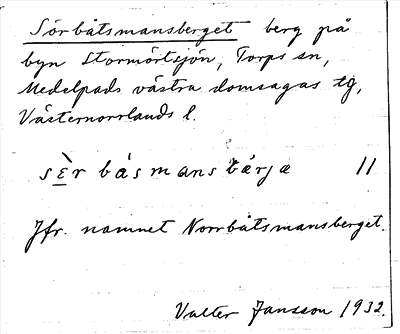 Sörbåtsmansberget berg på
byn Stormörtsjön, Torps sn,
Medelpads västra domsagas tg,
Västernorrlands l.
sɛ̀r båsmansbärja 11
Jfr. namnet Norrbåtsmansberget.
Valter Jansson 1932.